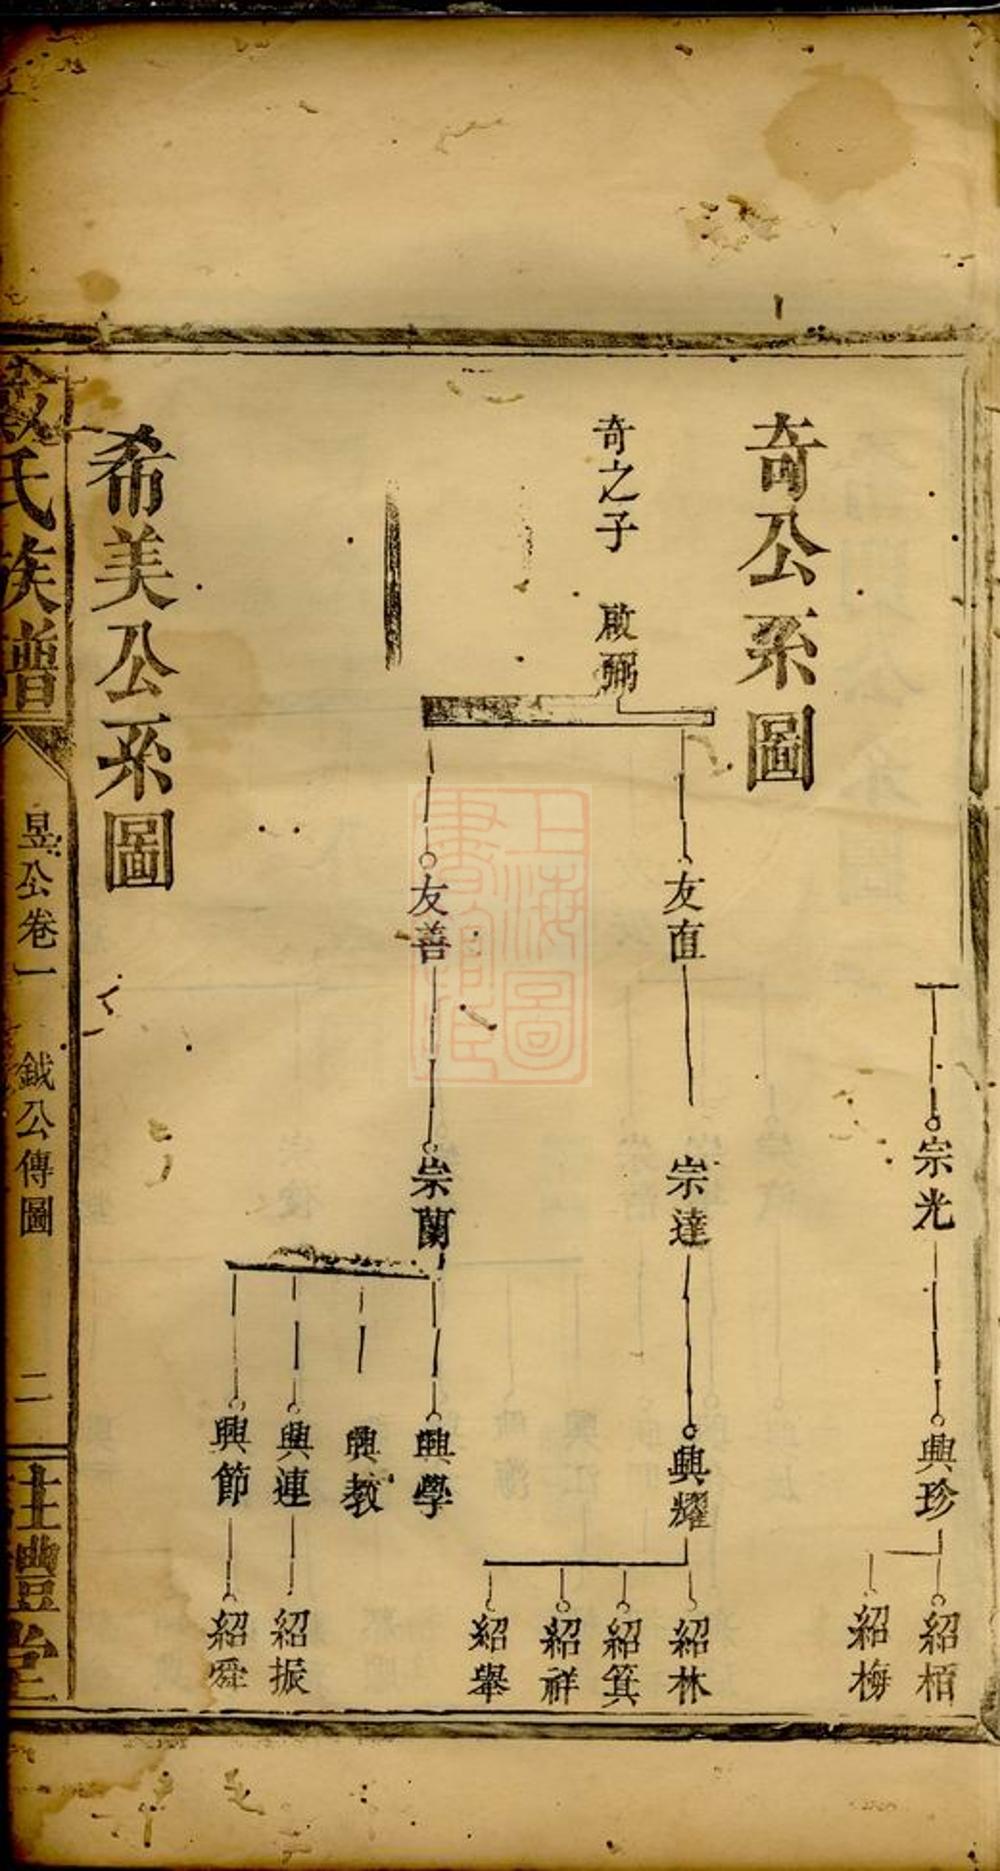 宗光
興珍
紹栢
紹梅
奇公系圖
奇之子 啟弼
友直
崇達
興耀
紹林
紹箕
紹祥
紹舉
友善
崇蘭
興學
興教
興連
紹振
興節
紹舜
希美公系圖
氏族譜
昱公卷一
鉞公傳圖
二
禮堂
上海圖書館藏